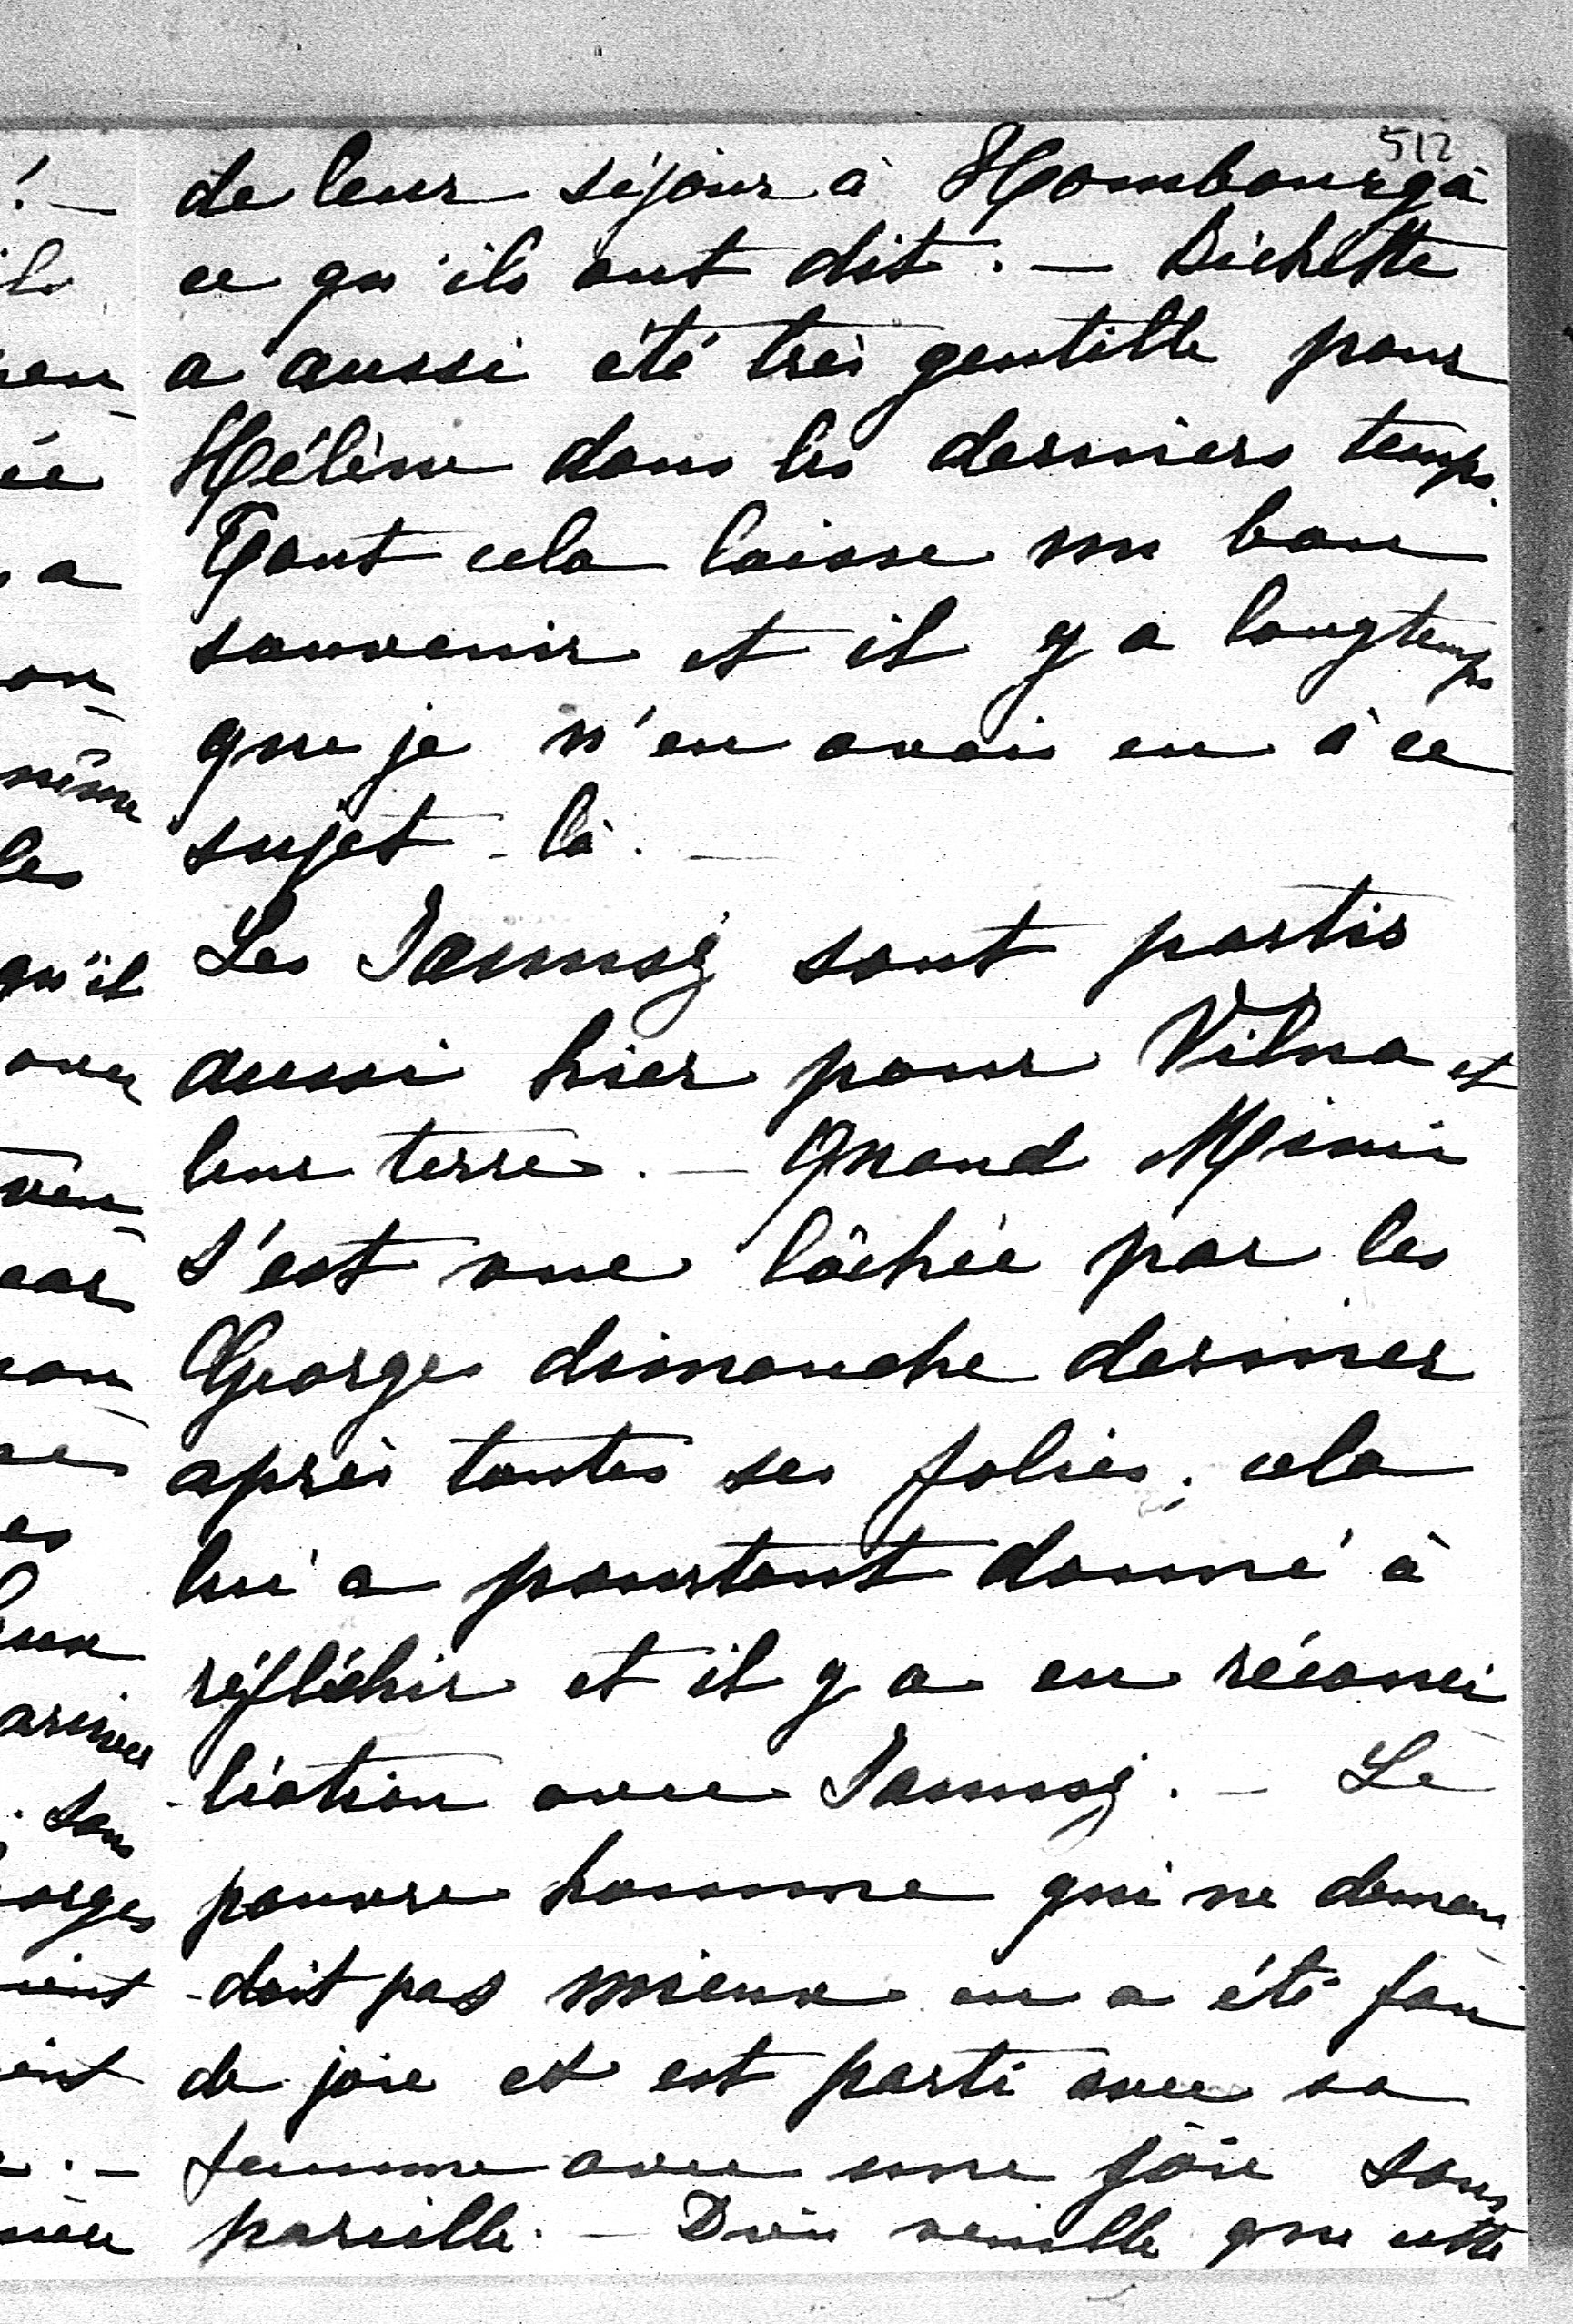 512
de leur séjour à Hombourg à
ce qu'ils ont dit. — Bichette
a aussi été très gentille pour
Hélène dans les derniers temps.
Tout cela laisse un bon
souvenir et il y a longtemps
que je n'en avais eu à ce
sujet-là. —
Les sont partis
aussi hier pour Vilna et
leur terre. — Quand Mimi
s'est vue lâchée par les
Georges dimanche dernier
après toutes ses folies, cela
lui a pourtant donné à
réfléchir et il y a eu réconci
-liation avec. — Le
pauvre homme qui ne deman
-dait pas mieux en a été fou
de joie et est parti avec sa
femme avec une joie sans
pareille. — Dieu veuille que cette